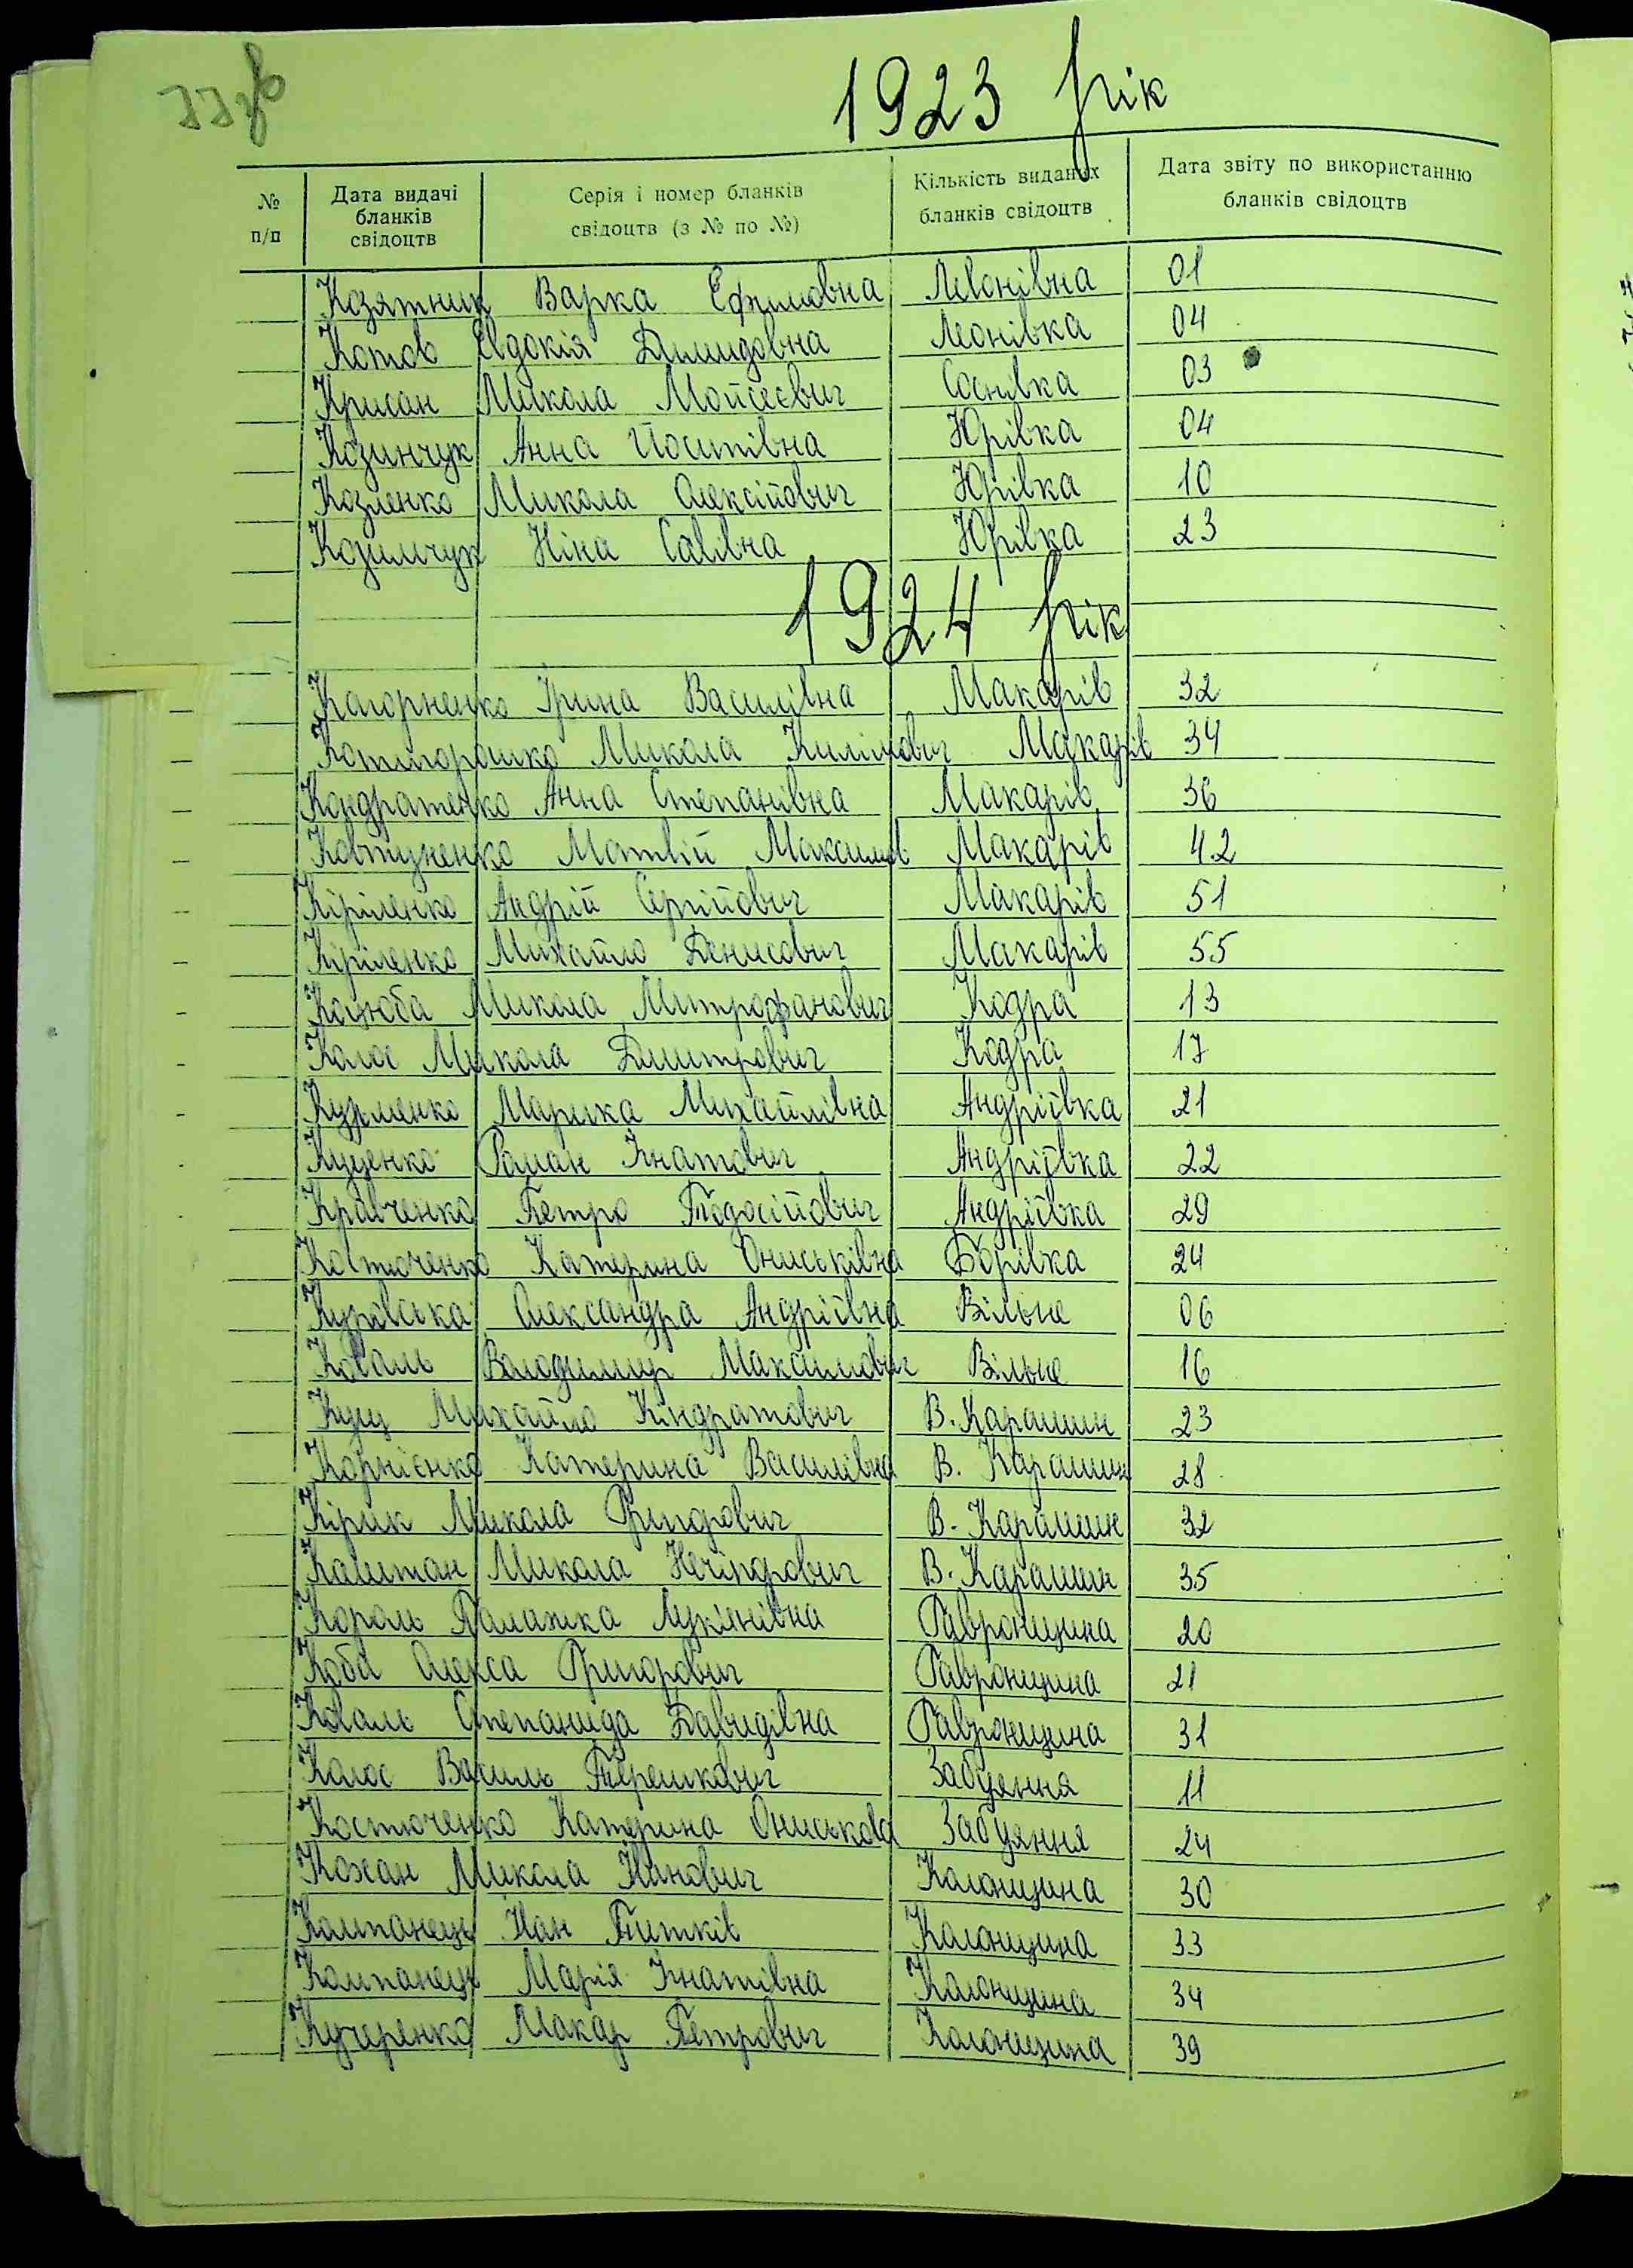 77зв
1923 рік
№ п/п
Дата видачі бланків свідоцтв
Серія і номер бланків свідоцтв (з № по №)
Кількість виданих бланків свідоцтв
Дата звіту по використанню бланків свідоцтв
Козятник Варка Ефимовна Леонівна 01
Котов Євдокія Димидовна Леонівка 04
Крисан Микола Мойсеєвич Соснівка 03
Козинчук Анна Йосипівна Юрівка 04
Козленко Микола Олексійович Юрівка 10
Козимчук Ніна Савівна Юрівка 23
1924 рік
Кагорненко Ірина Василівна Макарів 32
Котигорошко Микола Климович Макарів 34
Кондратенко Анна Степанівна Макарів 36
Ковтуненко Матвій Максимов Макарів 42
Кіріленко Андрій Сергійович Макарів 51
Кіріленко Михайло Денисович Макарів 55
Коцюба Микола Митрофанович Кодра 13
Колос Микола Дмитрович Кодра 17
Кузьменко Марика Михайлівна Андріївка 21
Куценко Роман Ігнатович Андріївка 22
Кравченко Петро Тодосійович Андріївка 29
Костюченко Катерина Ониськівна Борівка 24
Куровська Олександра Андріївна Вільне 06
Коваль Володимир Максимович Вільне 16
Куц Михайло Кіндратович В. Карашин 23
Корнієнко Катерина Василівна В. Карашин 28
Кірик Микола Григорович В. Карашин 32
Каштан Микола Нечіпорович В. Карашин 35
Король Палажка Лукінівна Гавронщина 20
Коба Олекса Григорович Гавронщина 21
Коваль Степанида Давидівна Гавронщина 31
Колос Василь Терешкович Забуяння 11
Костюченко Катерина Ониськова Забуяння 24
Кохан Микола Іванович Колонщина 30
Компанець Іван Титків Колонщина 33
Компанець Марія Ігнатівна Колонщина 34
Кучеренко Макар Петрович Колонщина 39